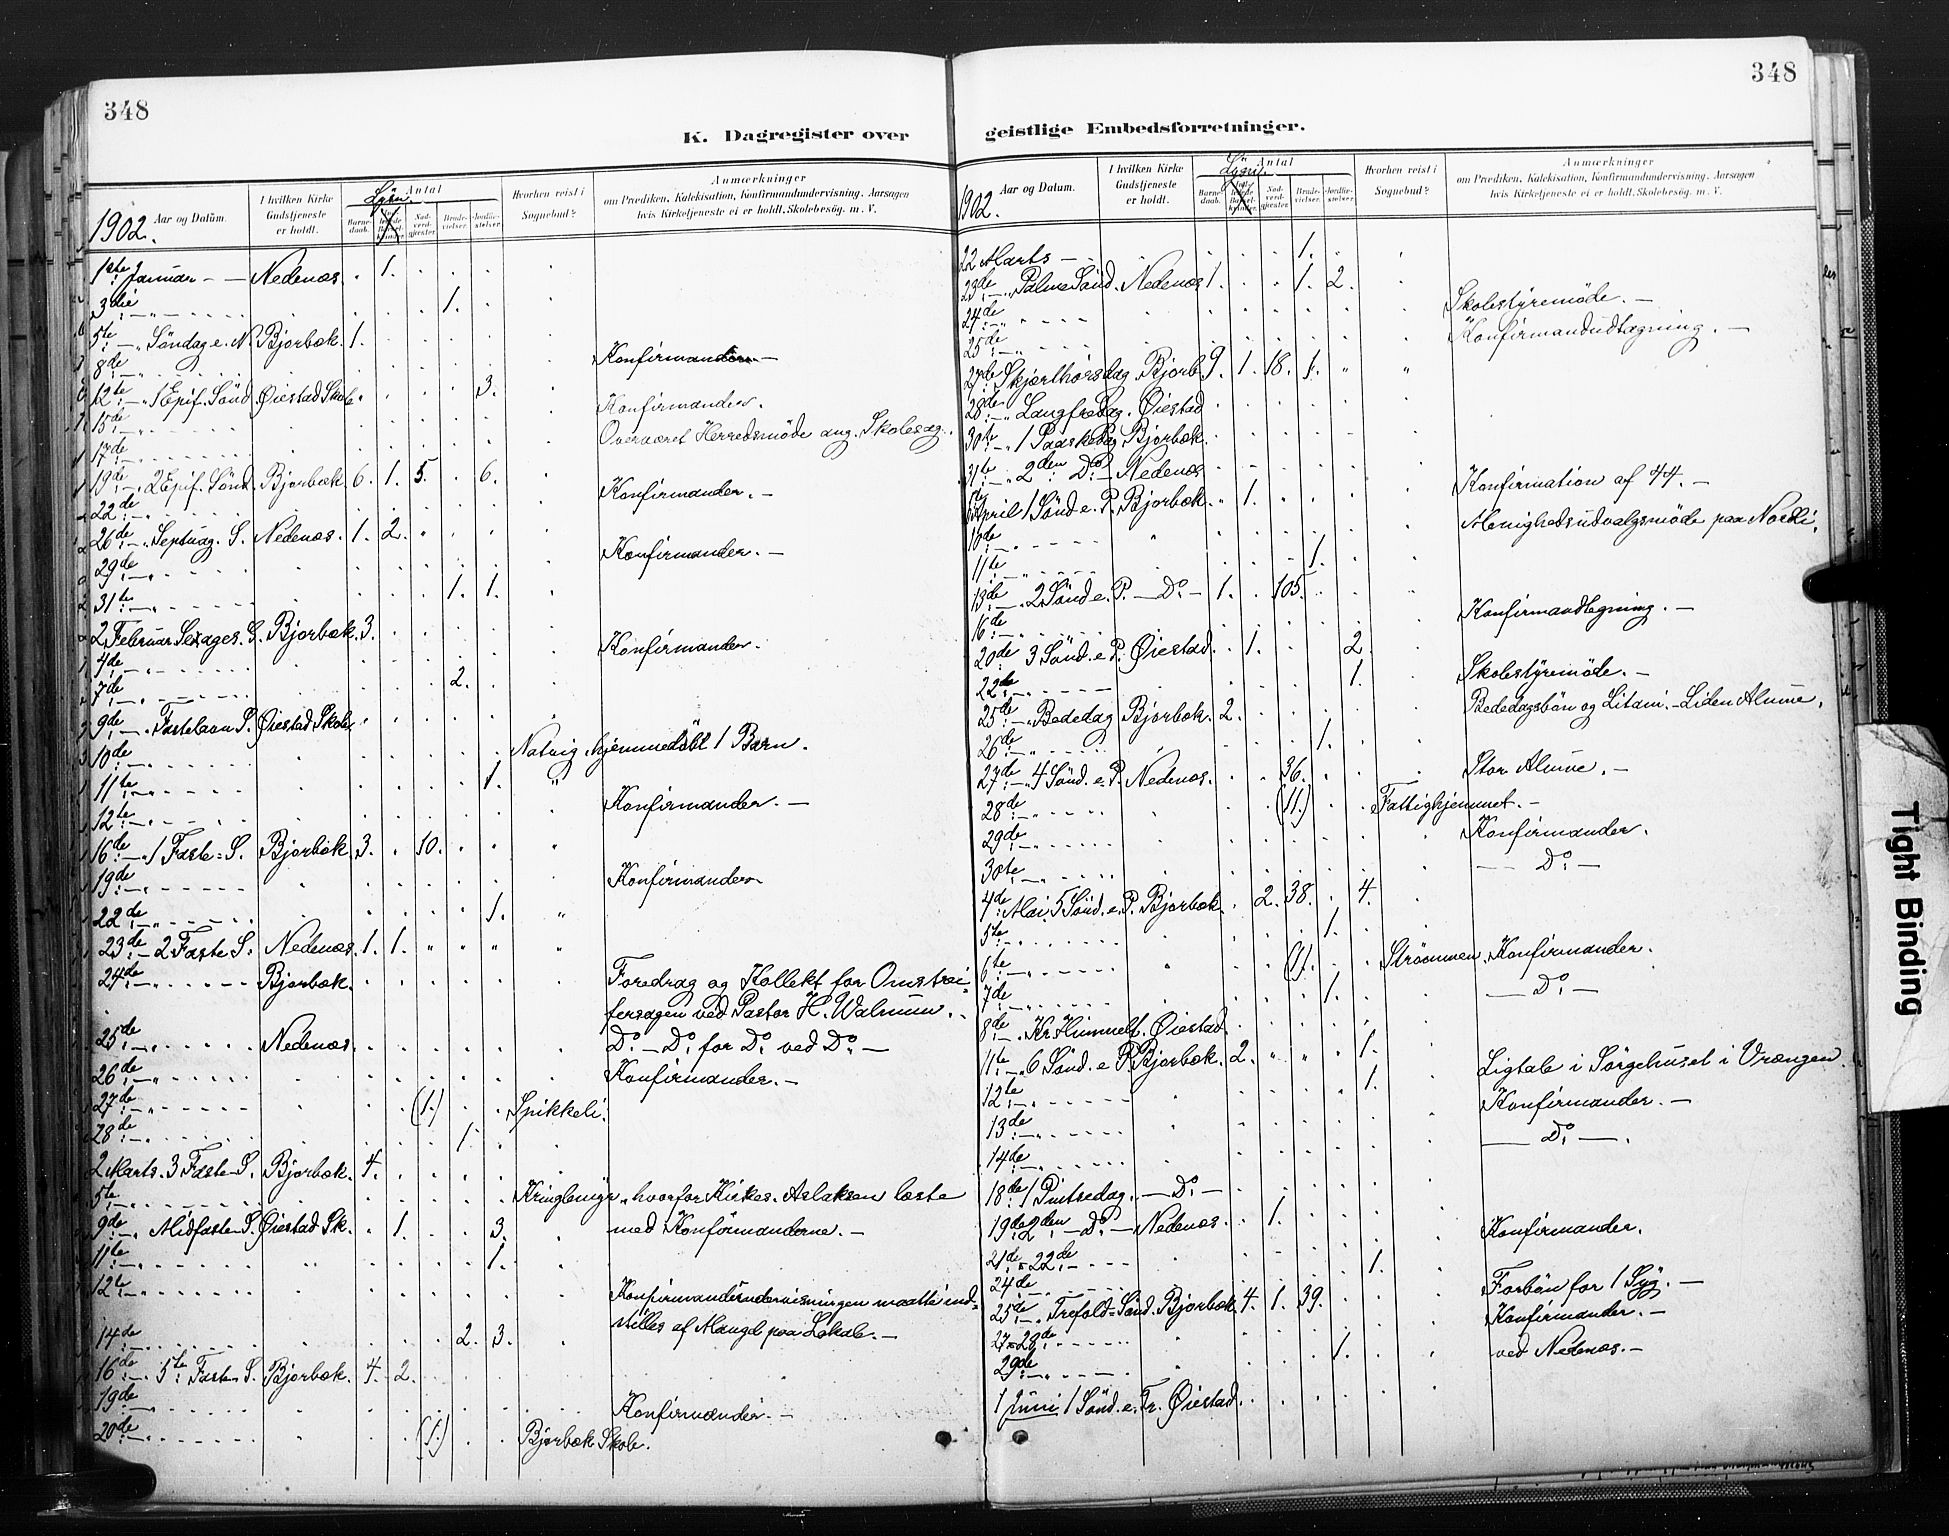 348
K. Dagregister over
1902.
Aar og Datum.
I hvilken Kirke Gudstjeneste er holdt.
Antal
Barnedaab.
Nadverdgjæster
Brudevielser.
Jordfæstelser.
Hvorhen reist i Sognebud?
Anmærkninger
om Prædiken, Katekisation, Konfirmandundervisning. Aarsagen
hvis Kirketjeneste ei er holdt. Skolebesøg. m. V.
1ste Januar - — Nedenæs. . 1. . . . .
3die — „ . 1. . .
5te — „ Søndag e. N. Bjorbæk. 1. . . . .
8de Konfirmander —
12te — „ 1 Epif. Sönd. Øiestad Skole . . . 3. .
15de — „ Konfirmander.
17de Overværet Herredsmöde ang. Skolesag.
19de — „ 2 Epif. Sönd. Bjorbæk 6. 1. 5. . 6. .
22de — „ Konfirmander. —
26de — „ Septuag. S. Nedenæs. 1. 2. „ . . .
29de — „ Konfirmander. —
31te — „ 1. 1. .
2 Februar Sexages. S. Bjorbæk. 3. . . . .
4de — „ Konfirmander.
7de — „ 2. . .
9de — „ Fastelavn S. Øiestad Skole . . . . .
10de — „ Natvig, hjemmedöbt 1 Barn.
11te — „ 1. „
12te — „ Konfirmander. —
16de — „ 1 Faste = S. Bjorbæk. 3. . 10. . . „
19de — „ Konfirmander
22de — „ 1. „
23de — 2 Faste S. Nedenæs. 1. 1. „ „ „ „
24de — „ Bjorbæk. Foredrag og Kollekt for Omstrei-
fersagen ved Pastor H. Walnum.
25de — „ Nedenæs. Do. — Do. for Do. ved Do. —
26de — „ Konfirmander. —
27de — „ (1.) . . Spikkeli.
28de — „ 1. .
2 Marts. 3 Faste S. Bjorbæk. 4. . . . .
5te — Kringlemyr, hvorfor Kirkes. Aslaksen læste
9de — „ Midfaste S. Øiestad Sk. . 1. . . 3. . med Konfirmanderne. —
11te — „ 1. .
12te — „ Konfirmandundervisningen maatte ind-
stilles af Mangel paa Lokale. —
14de — „ 2. 3. .
16de — „ 5te Faste S. Bjorbæk. 4. 2. . . .
19de — „ Konfirmander. —
20de — „ (1.) . . Bjorbæk Skole.
348
geistlige Embedsforretninger.
1902.
Aar og Datum.
I hvilken Kirke Gudstjeneste er holdt.
Antal
Barnedaab.
Nadverdgjæster
Brudevielser.
Jordfæstelser.
Hvorhen reist i Sognebud?
Anmærkninger
om Prædiken, Katekisation, Konfirmandundervisning. Aarsagen
hvis Kirketjeneste ei er holdt. Skolebesøg. m. V.
22 Marts — 1. . .
23de — „ Palme Sönd. Nedenæs 1. . . 1. 2. .
24de — „ Skolestyremöde. —
25de — „ Konfirmandudtagning. —
27de Skjærthorsdag. Bjorb. 9. 1. 18. 1. „ „
28de — „ Langfredag. Øiestad
30te — „ 1 Paaskedag Bjorbæk.
31te — „ 2den Do. — Nedenæs Konfirmation af 44. —
April 1 Sönd e. P. Bjorbæk. „ 1. . . . . Menighedsudvalgsmöde paa Nordli.
10de — „
11te — „ 1. . .
13de — „ 2 Sönd e. P. — Do. — 1. . 105. . . .
16de — „ Konfirmandtegning. —
20de 3 Sönd. e P. Øiestad. . 1. . . 2. .
22de — „ 1. . Skolestyremöde. —
25de — „ Bededag Bjorbæk. 2. . . . . Bededagsbön og Litani. — Liden Alune.
26de — „ 1. .
27de — „ 4 Sönd. e. P. Nedenæs. . . 36. . . . Stor Alune. —
28de — „ (11.) . . Fattighjemmet. —
29de — „ Konfirmander.
30te — „ — Do. —
4de Mai. 5 Sönd. e. P. Bjorbæk. . 2. 38. . 4. .
5te — „ 1. .
6te — „ (1). . . Strömmen. Konfirmander.
7de — „ 1. . — Do. —
8de — „ Kr. Himmelf. Øiestad
11te — „ 6 Sönd. e P. Bjorbæk. 2. „ „ . 1. . Ligtale i Sörgehuset i Vrængen.
12te — „ 1. .
13de — „ Konfirmander. —
14de — „ — Do. — .
18de 1 Pintsedag. — Do. —
19de 2den — Do. — Nedenæs. . 1. . . .
21de = 22de — Konfirmander.
24de — „ 1. .
25de — „ Trefold = Sönd. Bjorbæk 4. 1. 39. . . . Forbön for 1 Syg. —
27 = 28de — „ Konfirmander. —
29de — „ 1. . ved Nedenæs. —
1 Juni 1 Sönd. e. Tr. Øiestad.
Tight Binding